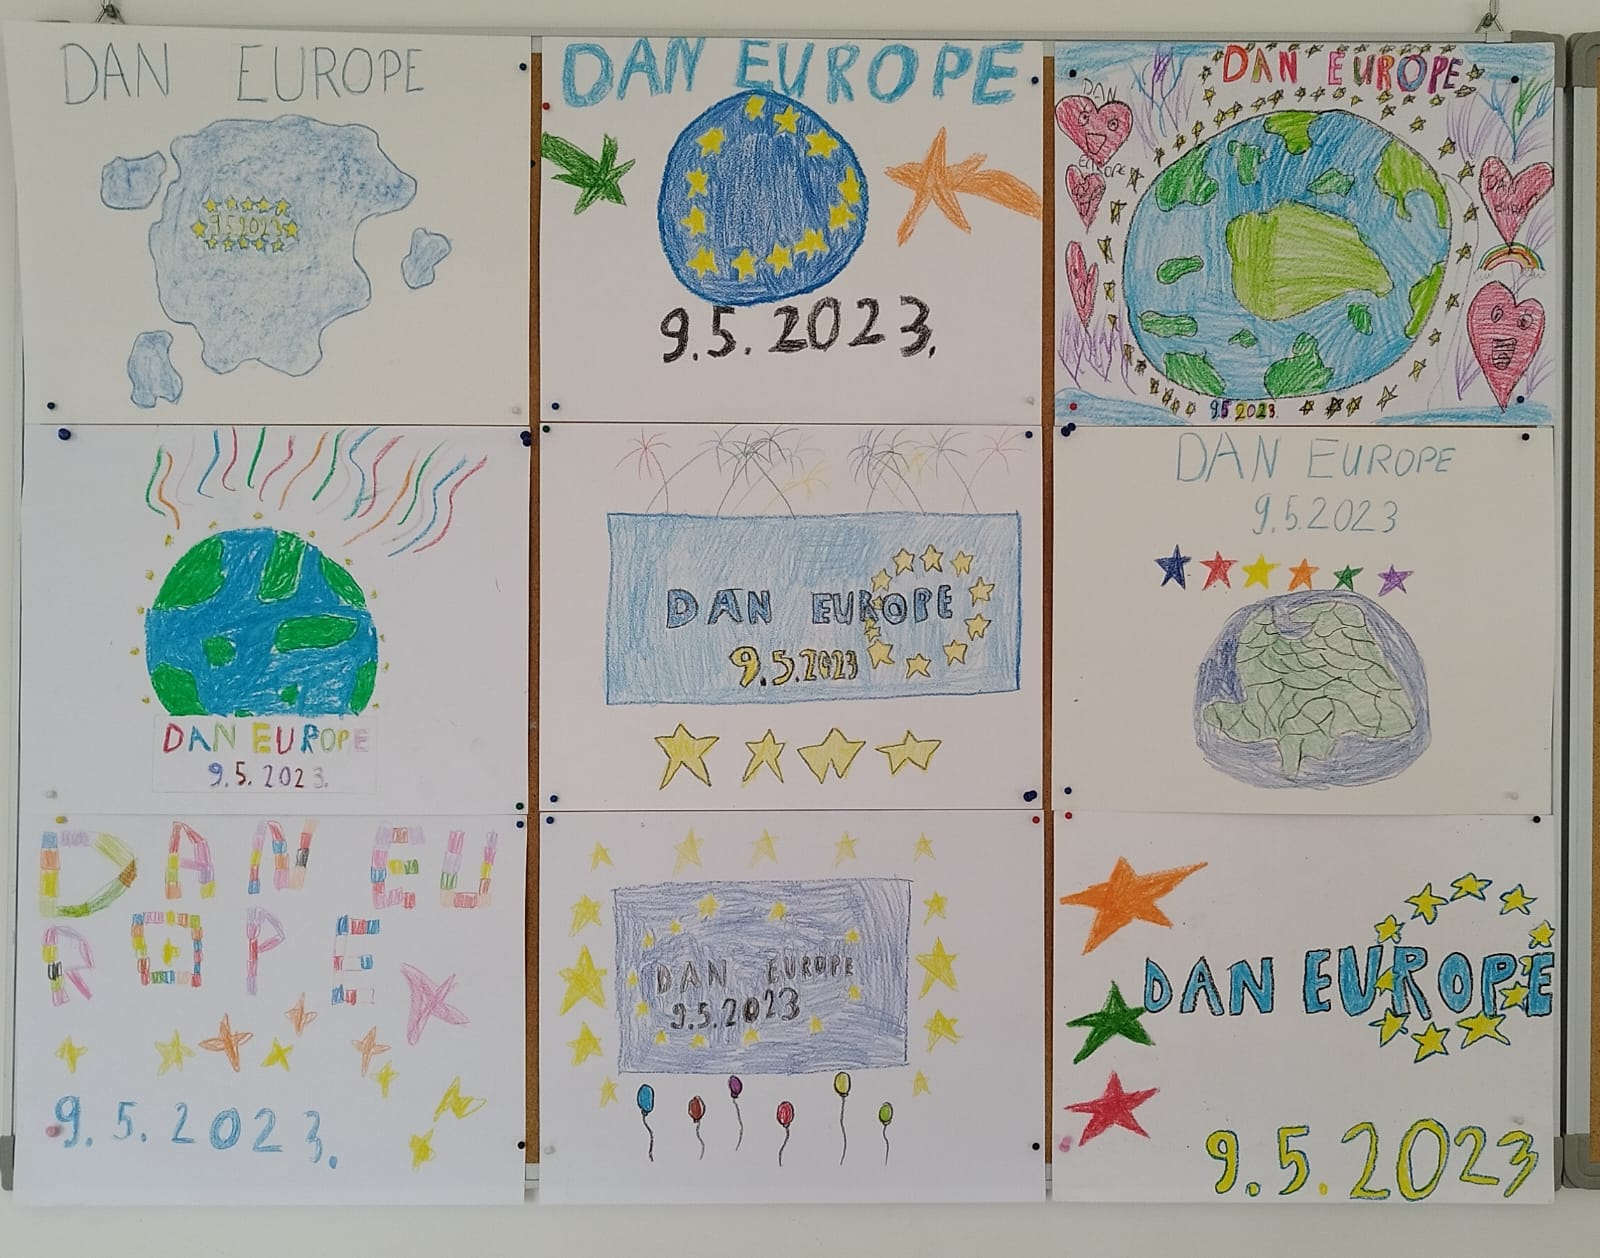 DAN EUROPE
9.5.2023
DAN EUROPE
9.5.2023.
DAN EUROPE
DAN
EUROPE
DAN
9.5.2023.
DAN EUROPE
9.5.2023.
DAN EUROPE
9.5.2023
DAN EUROPE
9.5.2023
DAN EU
ROPE
9.5.2023.
DAN EUROPE
9.5.2023
DAN EUROPE
9.5.2023